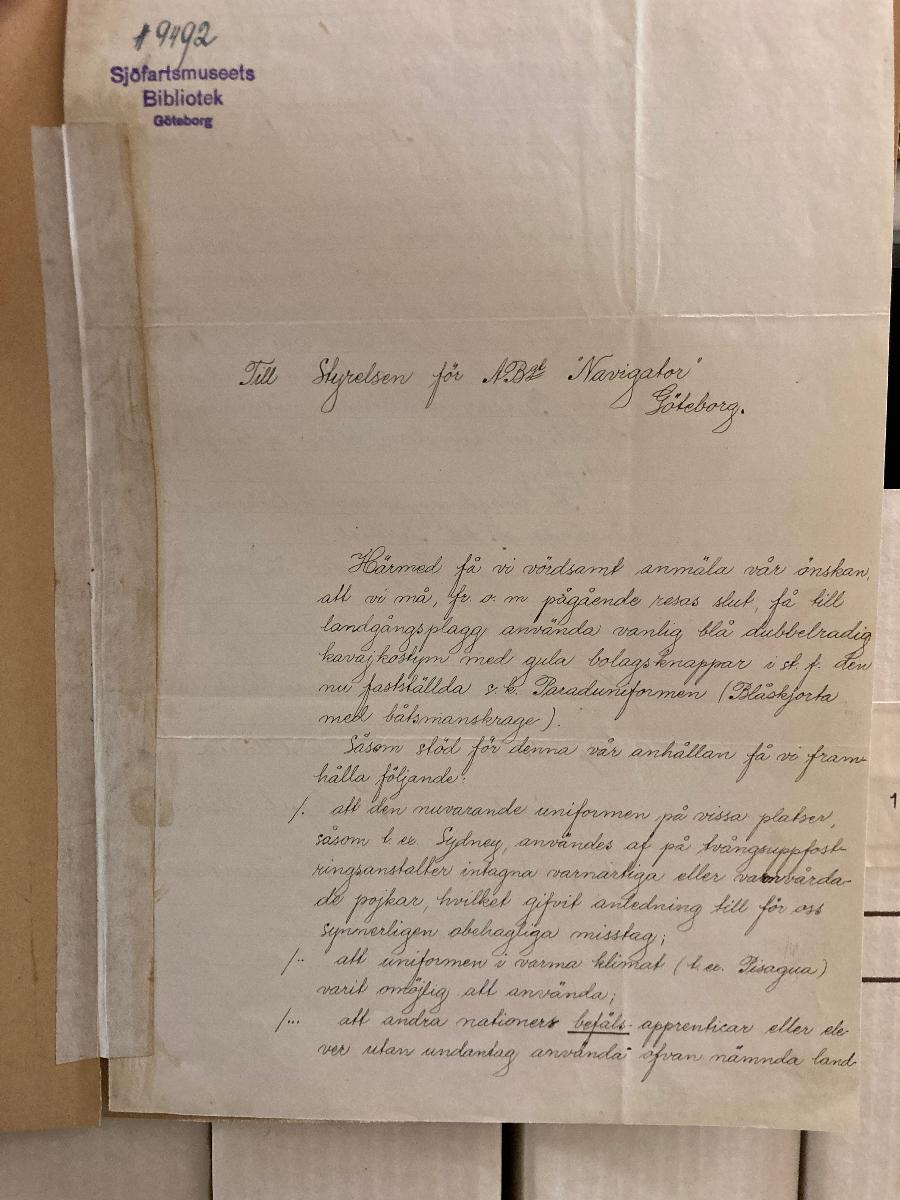 19492
Sjöfartsmuseets
Bibliotek
Göteborg
Till Styrelsen för ABget "Navigator"
Göteborg.
Härmed få vi vördsamt anmäla vår önskan,
att vi må, fr. o. m. pågående resas slut, få till
landgångsplagg använda vanlig blå dubbelradig
kavajkostym med gula bolagsknappar i st. f. den
nu fastställda s. k. Paraduniformen (Blåskjorta
med båtsmanskrage).
Såsom stöd för denna vår anhållan få vi fram-
hålla följande:
/. att den nuvarande uniformen på vissa platser,
såsom t. ex. Sydney, användes af på tvångsuppfost-
ringsanstalter intagna vanartiga eller vanvårda-
de pojkar, hvilket gifvit anledning till för oss
synnerligen obehagliga misstag;
/.. att uniformen i varma klimat (t. ex. Pisagua)
varit omöjlig att använda;
/... att andra nationers befäls-apprenticar eller ele-
ver utan undantag använda ofvan nämnda land-
1